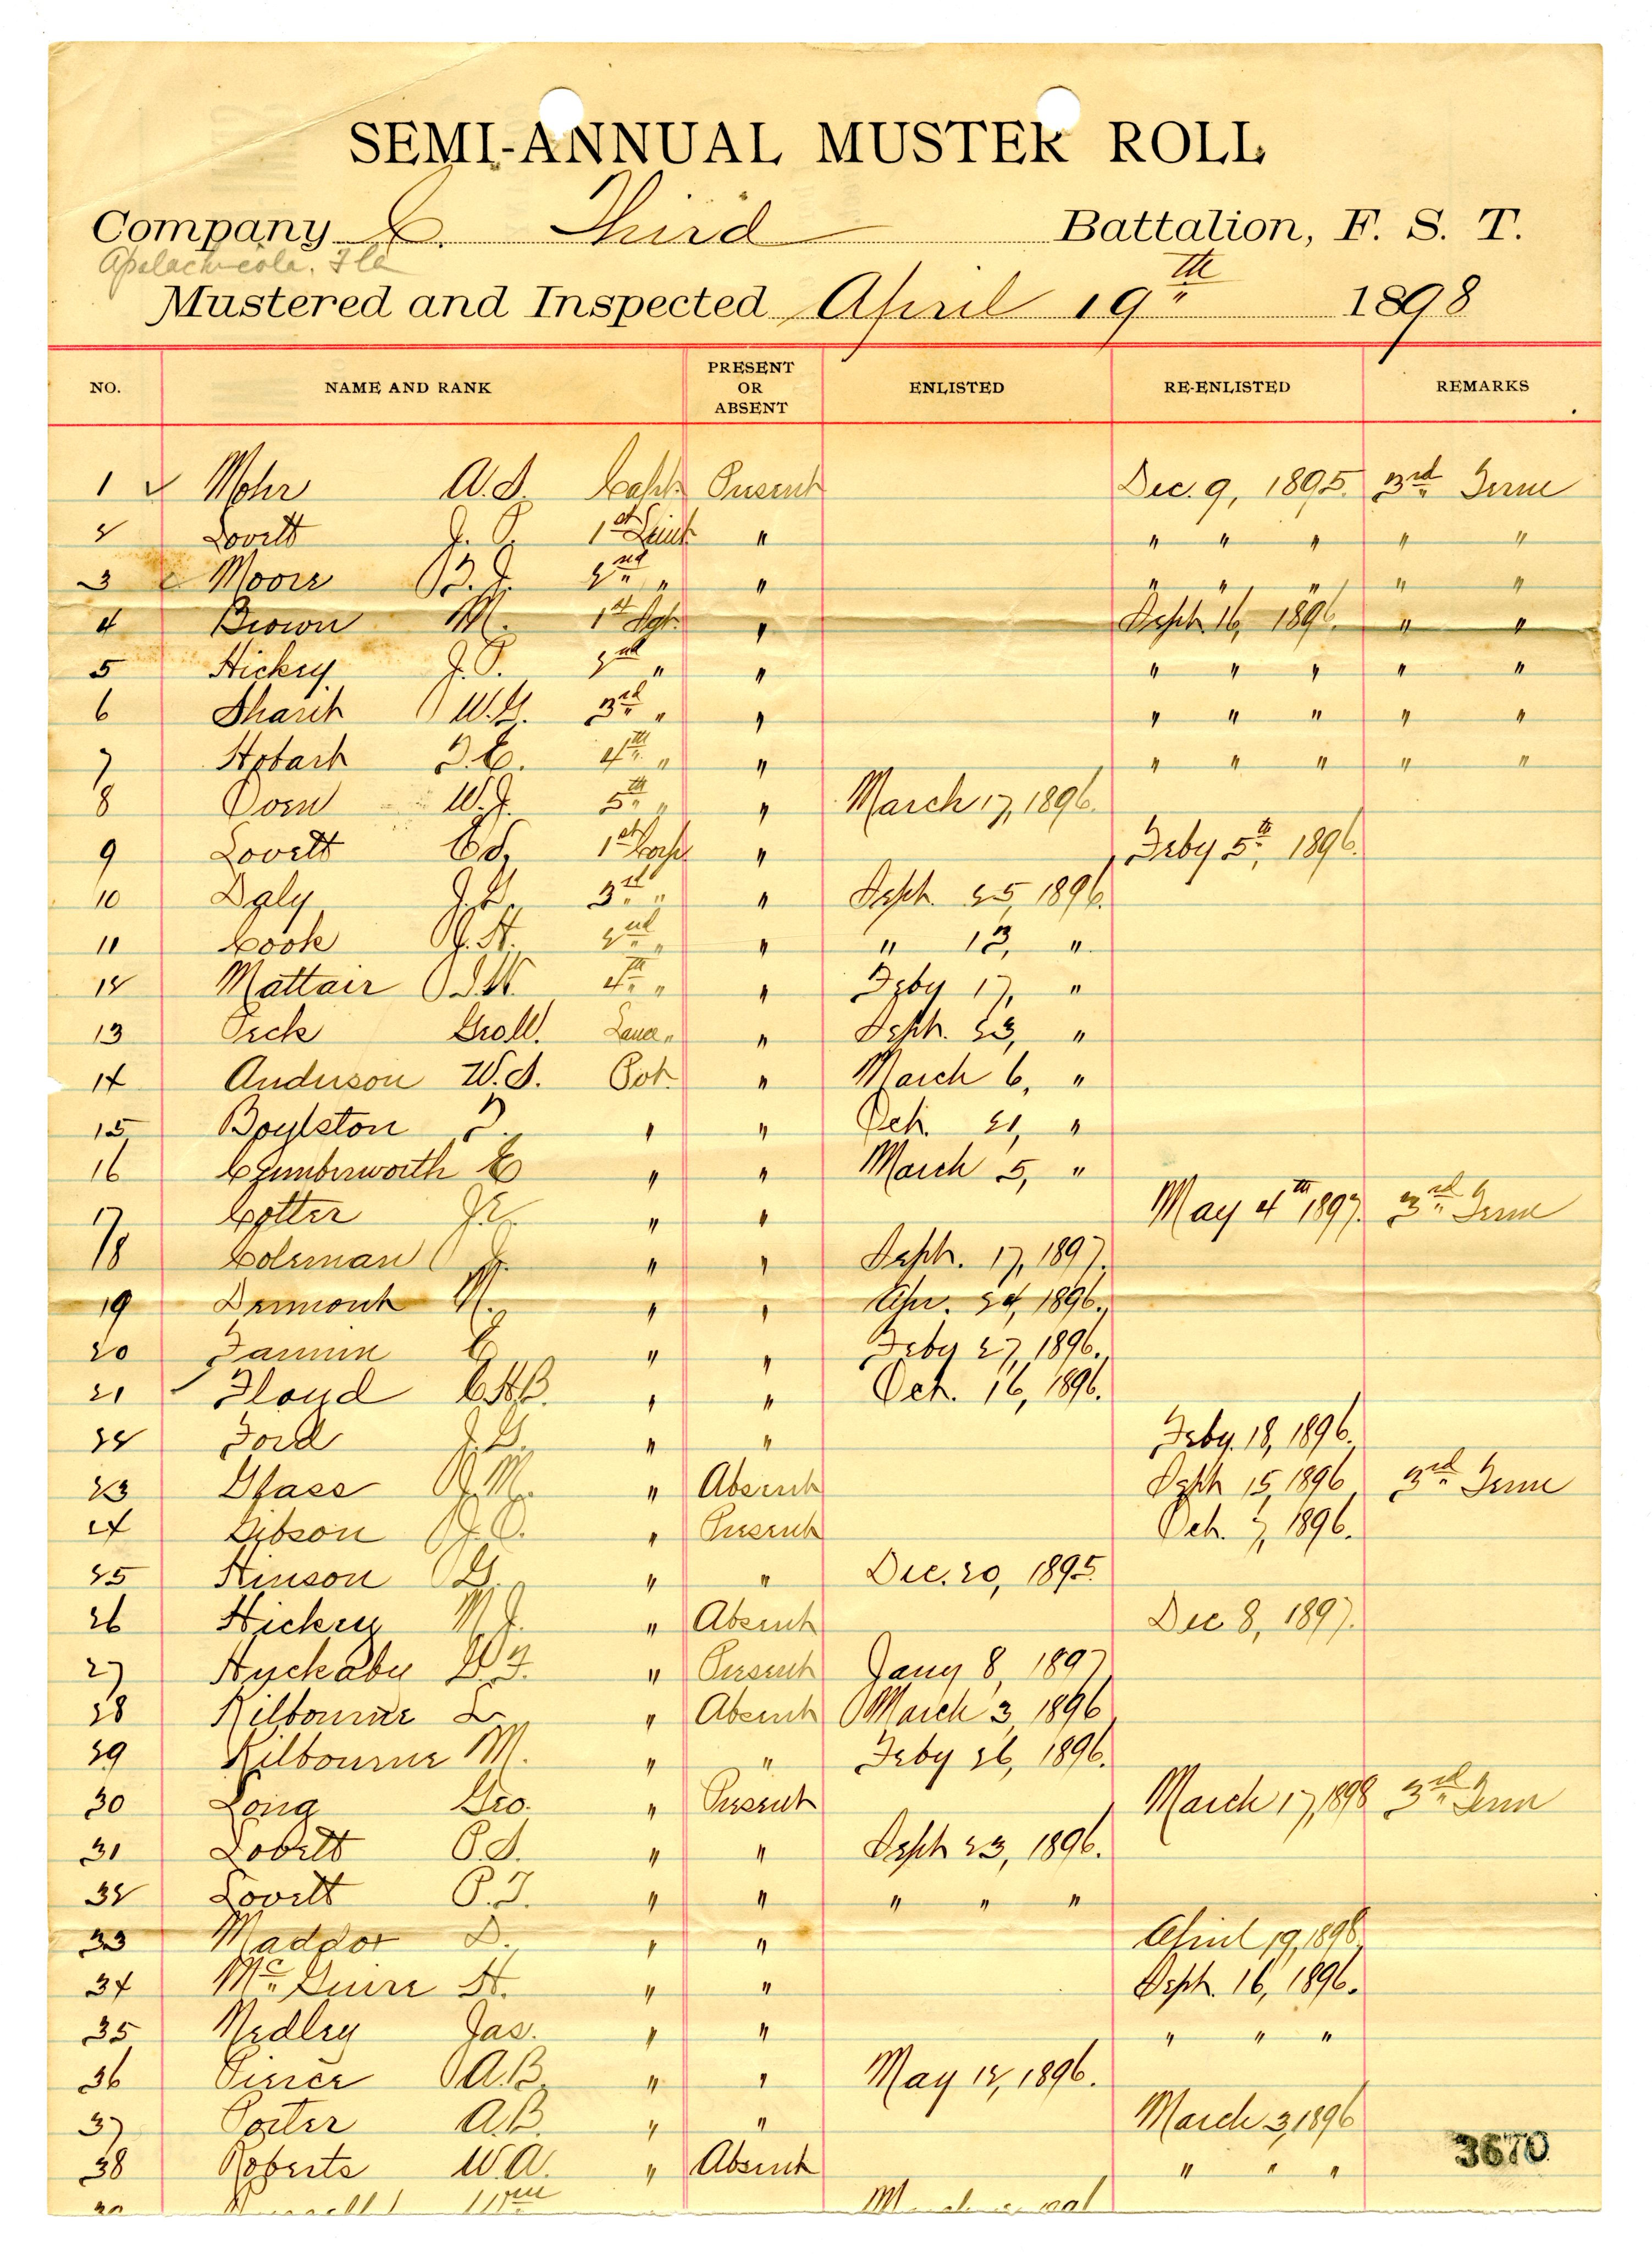 SEMI-ANNUAL MUSTER ROLL
Company C. Third Battalion, F. S. T.
Apalachicola. Fla
Mustered and Inspected April 19th 1898
NO. NAME AND RANK PRESENT OR ABSENT ENLISTED RE-ENLISTED REMARKS
1 ✓ Mohr A.S. Capt. Present Dec. 9, 1895. 3rd Term
2 Lovett J. P. 1st Lieut " " " " " "
3 Moore B.J. 2nd " " " " " " "
4 Brown M. 1st Sgt. " Sept. 16, 1896. " "
5 Hickey J.P. 2nd " " " " " " "
6 Sharit W.G. 3rd " " " " " " "
7 Hobart T.C. 4th " " " " " " "
8 Dorn W.J. 5th " " March 17, 1896.
9 Lovett Ed. 1st Corp. " Feby 5th, 1896.
10 Daly J.L. 3rd " " Sept. 25, 1896.
11 Cook J.H. 2nd " " " 12, ".
12 Mattair J.W. 4th " " Feby 17, "
13 Peck Groll. Lance " " Sept. 23, "
14 Anderson W.S. Pvt. " March 6, "
15 Boylston " " Oct. 21, "
16 Cumberworth C " " March 5, "
17 Cotter J. " " May 4th 1897. 3rd Term
18 Coleman J. " " Sept. 17, 1897.
19 Dermont N. " " Apr. 24, 1896.
20 Fannin C " " Feby 27, 1896.
21 ✓ Floyd C.H.B. " " Oct. 16, 1896.
22 Ford J.G. " " Feby. 18, 1896.
23 Glass J.M. " Absent Sept 15, 1896 3rd Term
24 Gibson J.C. " Present Oct. 7, 1896.
25 Hinson G. " " Dec. 20, 1895
26 Hickey M.J. " Absent Dec 8, 1897.
27 Huckaby W.F. " Present Jany 8, 1897
28 Kilbourne L " Absent March 3, 1896
29 Kilbourne M. " " Feby 26, 1896.
30 Long Geo. " Present March 17, 1898 3rd Term
31 Lovett P.S. " " Sept 23, 1896.
32 Lovett P.T. " " " " "
33 Maddox D. " " April 19, 1898
34 McGuire H. " " Sept. 16, 1896.
35 Nedley Jas. " " " " "
36 Pierce A.B. " " May 12, 1896.
37 Porter A.B. " " March 3, 1896
38 Roberts W.A. " Absent " " "
3670